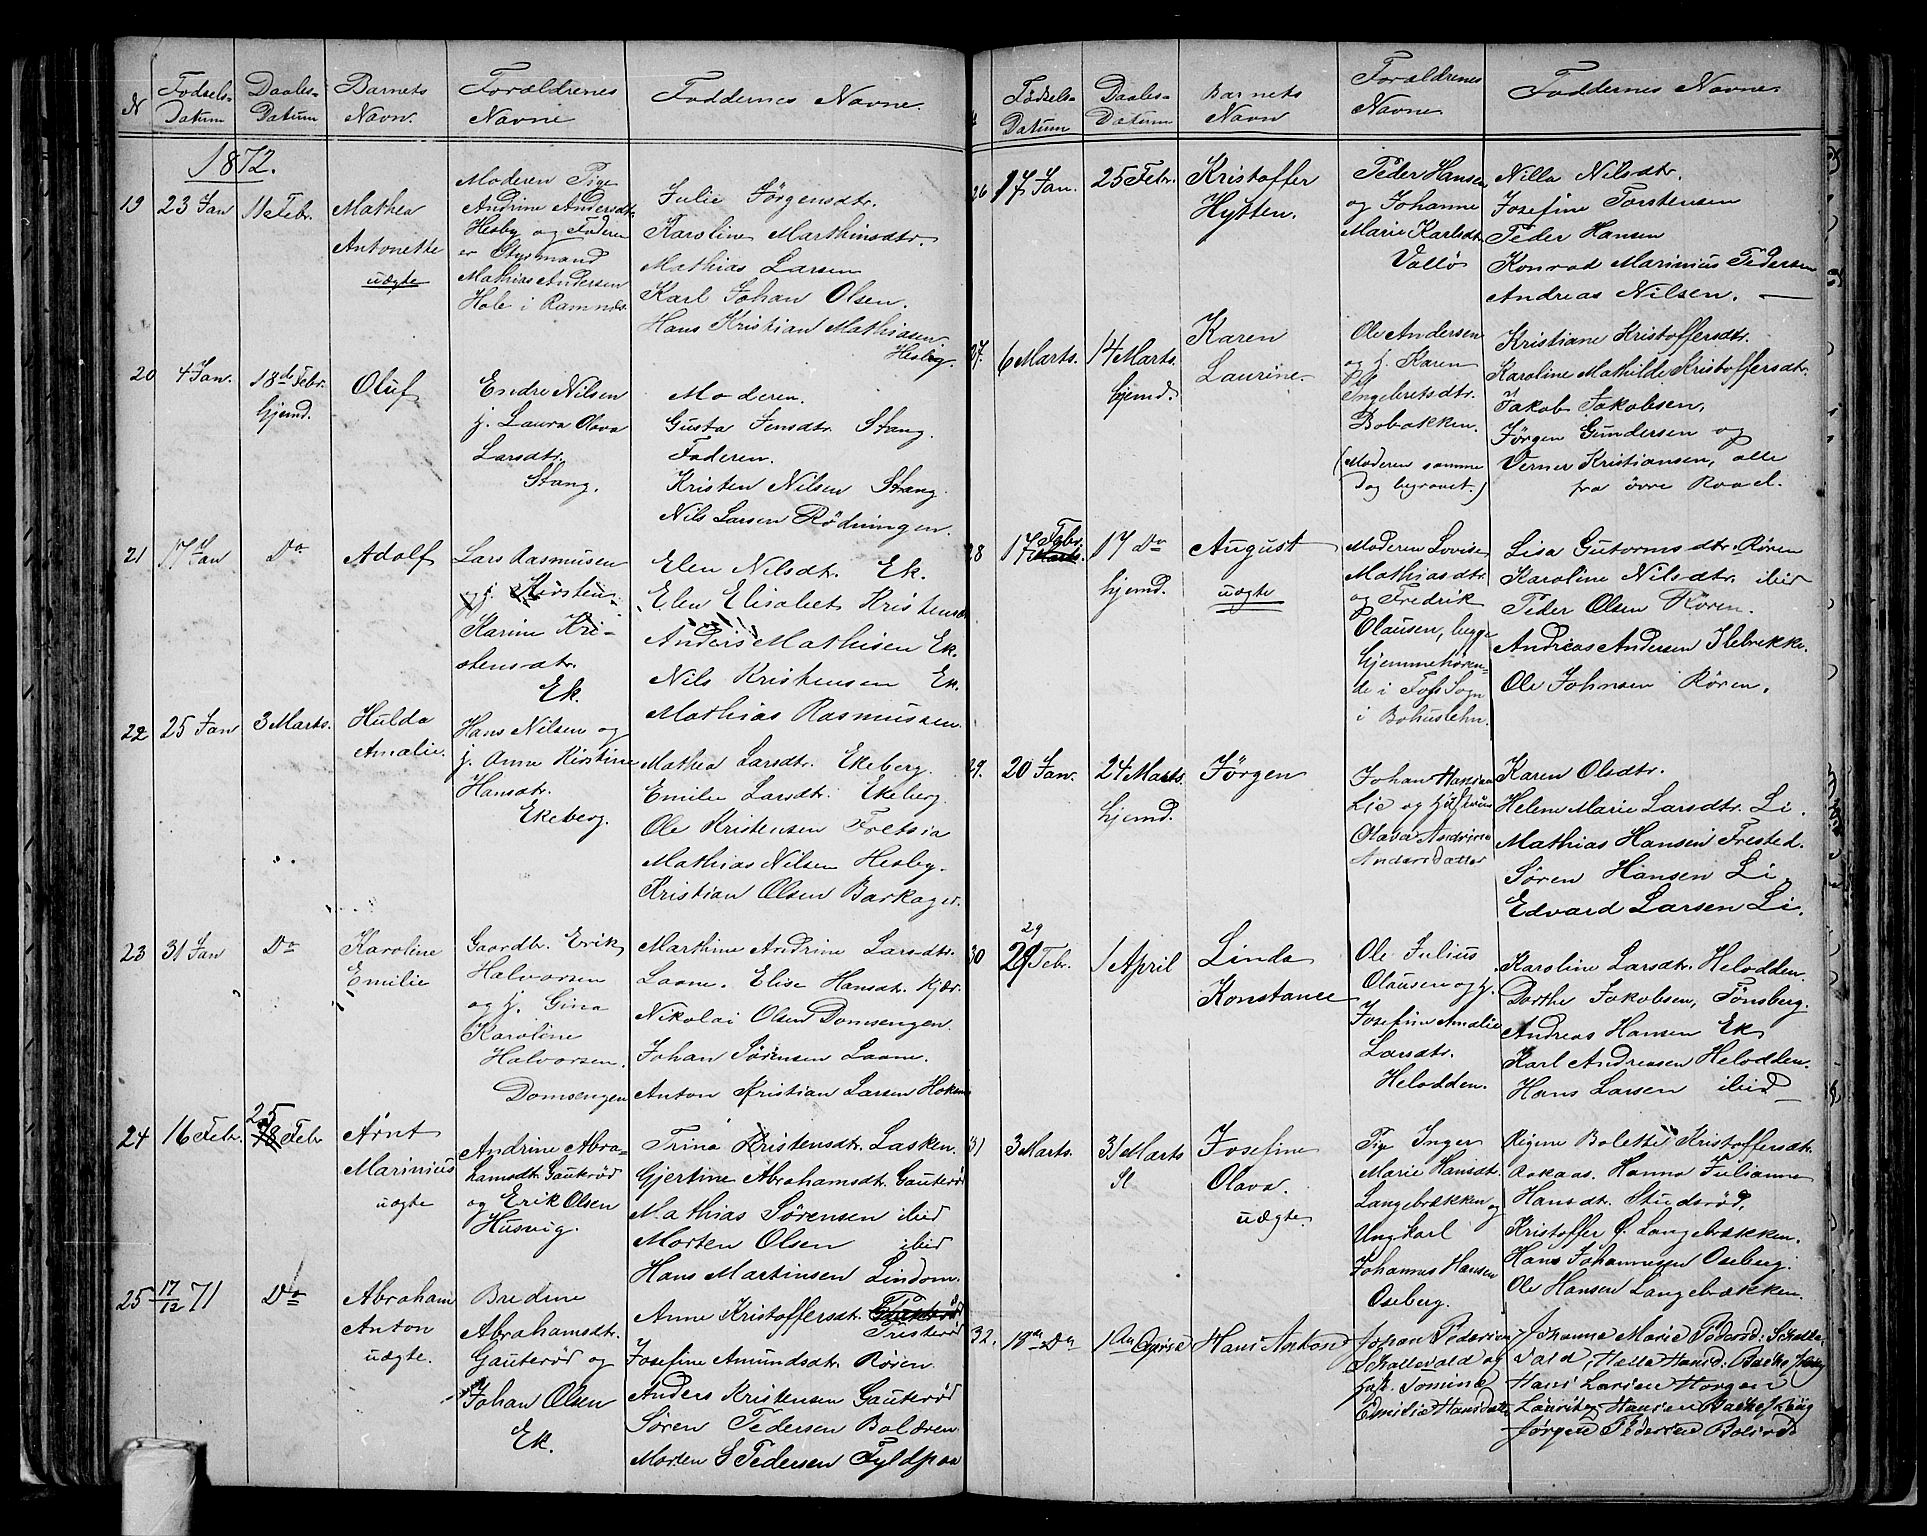 N
Fødsels-
Datum
Daabs-
Datum
Barnets
Navn.
Forældrenes
Navne
Faddernes Navne.
1872.
19
23 Jan
11 Febr.
Mathea
Antonette
uægte
Moderen Pige
Andrine Andersdtr.
Hesby og Faderen
er Styrmand
Mathias Andersen
Hole i Ramnæs.
Julie Jørgensdtr.
Karoline Marthinsdtr.
Mathias Larsen
Karl Johan Olsen.
Hans Kristian Mathiasen
Hesby.
20
4 Jan.
18de Febr.
hjemd.
Oluf
Endre Nilsen
h. Laura Olava
Larsdtr.
Stang.
Moderen.
Gusta Jensdtr. Stang.
Faderen.
Kristen Nilsen Stang.
Nils Larsen Rødningen.
21
17 Jan
Do
Adolf
Lars Rasmusen
og h. Kirsten
Karine Kri-
stensdtr.
Ek.
Elen Nilsdtr. Ek.
Elen Elisabet Kristensd
Anders Mathisen Ek.
Nils Kristensen Ek.
Mathias Rasmussen.
22
25 Jan
3 Marts.
Hulda
Amalie.
Hans Nilsen og
h. Anne Kirstine
Hansdtr.
Ekeberg.
Mathea Larsdtr. Ekeberg.
Emilie Larsdtr. Ekeberg.
Ole Kristensen Fretsia
Mathias Nilsen Hesby.
Kristian Olsen Barkager.
23
31 Jan
Do
Karoline
Emilie
Gaardbr. Erik
Halvorsen
og h. Gina
Karoline
Halvorsen.
Domsengen
Marthine Andrine Larsdtr.
Laane. Elise Hansdtr. Kjær.
Nikolai Olsen Domsengen.
Johan Sørensen Laane.
Anton Kristian Larsen
24
16 Febr.
25
18 Febr
Arnt
Marinius
uægte
Andrine Abra-
hamsdtr. Gauterød
og Erik Olsen
Husvig.
Trine Kristensdtr. Lasken.
Gjertine Abrahamsdtr. Gauterød
Mathias Sørensen ibid
Morten Olsen ibid
Hans Martinsen Lindom.
25
17/12 71
Do
Abraham
Anton
uægte.
Bredine
Abrahamsdtr.
Gauterød og
Johan Olsen
Ek.
Anne Kristoffersdtr. Gauterød
Tristerød
Josefine Amundsdtr. Røren.
Anders Kristensen Gauterød
Søren Pedersen Bolæren
Morten S Pedersen Fyldpaa
Fødsels-
Datum
Daabs-
Datum
Barnets
Navn
Forældrenes
Navne
Faddernes Navne.
26
17 Jan.
25 Febr.
Kristoffer
Hytten.
Peder Hansen
og Johanne
Marie Karlsdtr
Vallø
Nilla Nilsdtr.
Josefine Torstensen
Peder Hansen
Konrad Marinius Pedersen
Andreas Nilsen.
27.
6 Marts.
14 Marts.
hjemd.
Karen
Laurine.
Ole Andersen
og h. Karen
Ingebretsdtr.
Bobakken.
(Moderen samme
Dag begravet.)
Kristiane Kristoffersdtr.
Karoline Mathilde Kristoffersdtr.
Jakob Jakobsen,
Jørgen Gundersen og
Verner Kristiansen, alle
fra øvre Raael.
28
17 Febr.
Marts.
17 Do
hjemd.
August
uægte
Moderen Lovise
Mathiasdtr.
og Fredrik
Olausen, begge
hjemmehøren-
de i Foss Sogn
i Bohuslehn.
Lisa Gutormsdtr. Røren
Karoline Nilsdtr. ibid
Peder Olsen Røren.
Andreas Andersen Ilebrekke.
Ole Johnsen Røren.
29.
20 Jan.
24 Marts.
hjemd.
Jørgen
Johan Hansen
Lie og Hustru
Olava Andrine
Andersdatter
Karen Olsdtr.
Helene Marie Larsdtr. Li.
Mathias Hansen Frested.
Søren Hansen Li.
Edvard Larsen Li.
30
29
29 Febr.
1 April
Linda
Konstance
Ole Julius
Olausen og h.
Josefine Amalie
Larsdtr.
Helodden.
Karoline Larsdtr. Helodden.
Dorthe Jakobsen, Tønsberg.
Andreas Hansen Ek
Karl Andreasen Helodden.
Hans Larsen ibid
31
3 Marts.
31 Marts
Sl
Josefine
Olava.
uægte
Pige Inger
Marie Hansdtr.
Langebrækken og
Ungkarl
Johannes Hansen
Oseberg.
Rigene Bolette Kristoffersdtr.
Aakaas. Hanna Julianne
Hansdtr. Studsrød,
Kristoffer Ø. Langebrækken.
Hans Johannesen Oseberg.
Ole Hansen Langebrækken.
32.
18de Do
1ste April
Hans Anton
Johan Pedersen
Skallevold og
Hust. Tomine
Emilie Hansdatter
Johanne Marie Pedersd: Skalle-
vold, Helle Hansd: Bakkeskoug
Hans Larsen Horgen
Laurits Hansen Bakkeskoug
Jørgen Pedersen Bolsrød